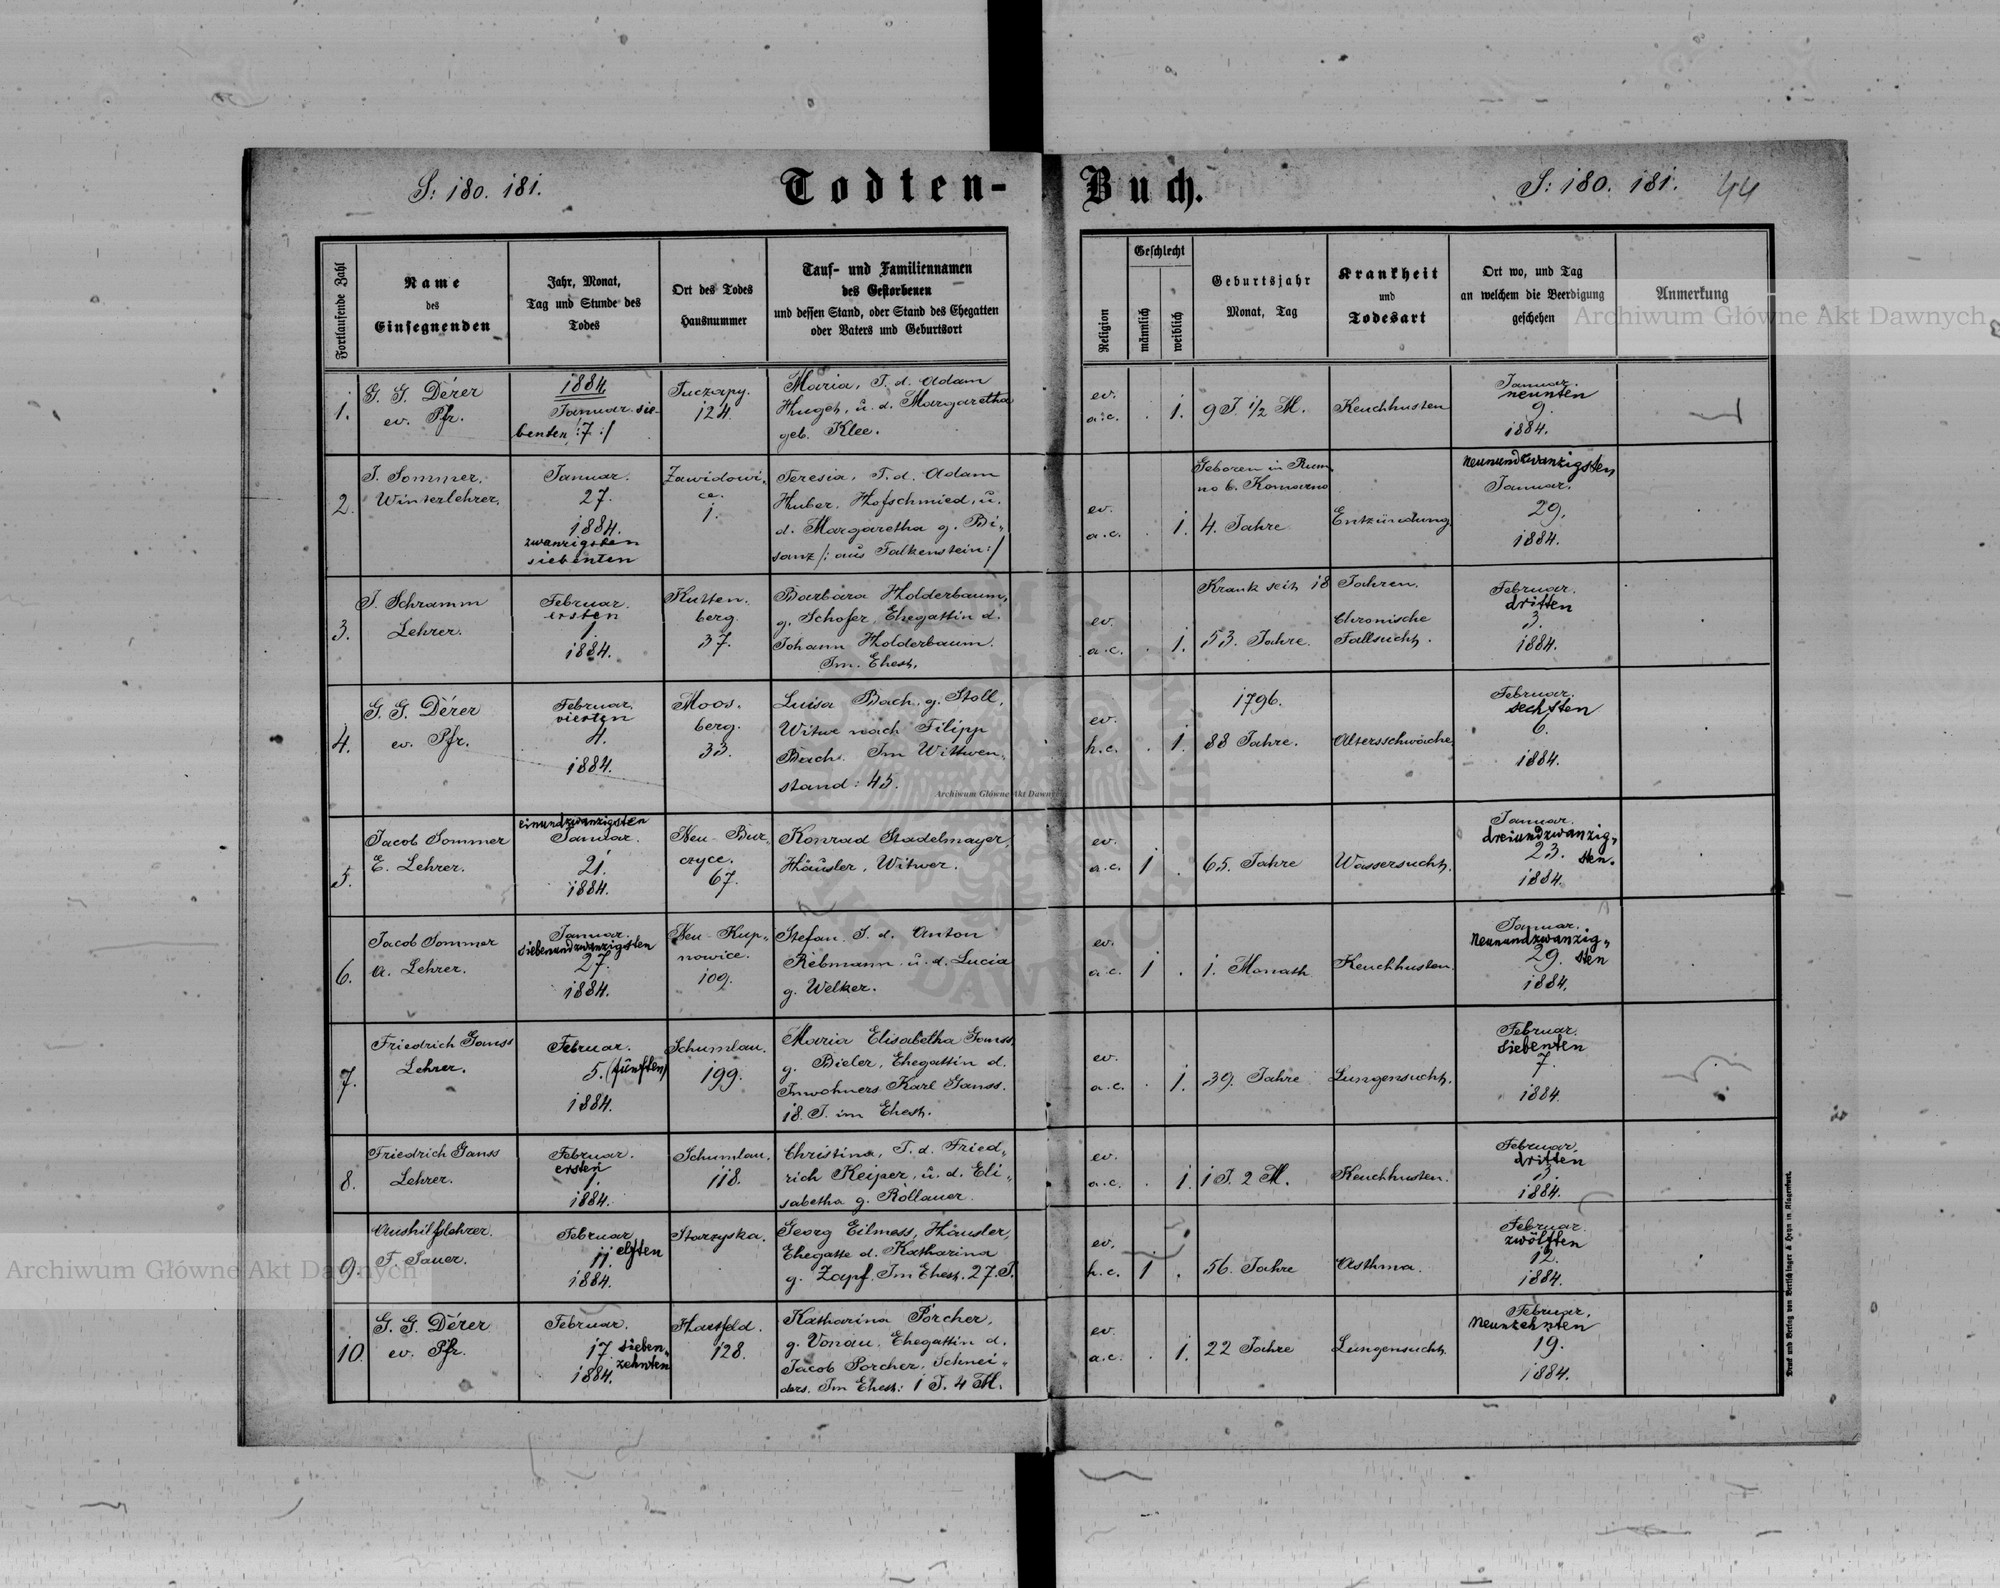 S: 180. 181.
Todten-
Buch.
S: 180. 181.
44
Fortlaufende Zahl
Name
des
Einsegnenden
Jahr, Monat,
Tag und Stunde des
Todes
Ort des Todes
Hausnummer
Tauf- und Familiennamen
des Gestorbenen
und dessen Stand, oder Stand des Ehegatten
oder Vaters und Geburtsort
Religion
Geschlecht
männlich
weiblich
Geburtsjahr
Monat, Tag
Krankheit
und
Todesart
Ort wo, und Tag
an welchem die Beerdigung
geschehen
Anmerkung
Archiwum Główne Akt Dawnych
1.
G. G. Dérer
ev. Pfr.
1884.
Januar sie-
benten /:7:/
Tuczapy.
124.
Maria, T. d. Adam
Huget, u. d. Margaretha
geb. Klee.
ev.
a.c.
.
1.
9 J. 1/2 M.
Keuchhusten
Januar.
neunten
9.
1884.
2.
J. Sommer,
Winterlehrer.
Januar.
27.
1884.
zwanzigsten
siebenten
Zawidowi-
ce.
1.
Teresia, T. d. Adam
Huber, Hofschmied, u.
d. Margaretha g. Bi-
sanz /: aus Falkenstein:/
ev.
a.c.
.
1.
Geboren in Rum
no b. Komarno
4. Jahre
Entzündung
Neunundzwanzigsten
Januar.
29.
1884.
3.
J. Schramm
Lehrer.
Februar.
ersten
1.
1884.
Kutten-
berg.
37.
Barbara Holderbaum,
g. Schofer, Ehegattin d.
Johann Holderbaum.
Im Ehest.
ev.
a.c.
.
1.
Krank seit 18 Jahren.
53. Jahre.
Chronische
Fallsucht.
Februar.
dritten
3.
1884.
4.
G. G. Dérer
ev. Pfr.
Februar.
vierten
4.
1884.
Moos-
berg.
33.
Luisa Bach. g. Stoll.
Witwe nach Filipp
Bach. Im Wittwen-
stand: 45.
ev.
h.c.
.
1.
1796.
88 Jahre.
Altersschwäche
Februar.
sechsten
6.
1884.
Archiwum Główne Akt Dawnych
5.
Jacob Sommer
E. Lehrer.
einundzwanzigsten
Januar.
21.
1884.
Neu-Bur-
czyce.
67.
Konrad Stadelmayer,
Häusler, Witwer.
ev.
a.c.
1
.
65. Jahre
Wassersucht.
Januar.
dreiundzwanzig-
23. sten.
1884.
6.
Jacob Sommer
A. Lehrer.
Januar.
siebenundzwanzigsten
27.
1884.
Neu-Kup-
nowice.
109.
Stefan. S. d. Anton
Rebmann u. d. Lucia
g. Welker.
ev.
a.c.
1
.
1. Monath
Keuchhusten.
Januar.
Neunundzwanzig-
29. sten
1884.
7.
Friedrich Ganss
Lehrer.
Februar.
5. (fünften)
1884.
Schumlau.
199.
Maria Elisabetha Ganss,
g. Bieler, Ehegattin d.
Inwohners Karl Ganss.
18. J. im Ehest.
ev.
a.c.
.
1.
39. Jahre
Lungensucht.
Februar.
siebenten
7.
1884.
8.
Friedrich Ganss
Lehrer.
Februar.
ersten
1.
1884.
Schumlau.
118.
Christina, T. d. Fried-
rich Keiper, u. d. Eli-
sabetha g. Röllauer.
ev.
a.c.
.
1.
1 J. 2 M.
Keuchhusten.
Februar.
dritten
3.
1884.
9.
Aushilfslehrer.
F. Sauer.
Februar
11. elften
1884.
Starzyska.
Georg Eilmess, Häusler,
Ehegatte d. Katharina
g. Zapf. Im Ehest. 27. J.
ev.
h.c.
1
.
56. Jahre
Asthma.
Februar.
zwölften
12.
1884.
Archiwum Główne Akt Dawnych
10.
G. G. Dérer
ev. Pfr.
Februar.
17. sieben-
zehnten
1884.
Hartfeld.
128.
Katharina Porcher,
g. Vonau, Ehegattin d.
Jacob Porcher, Schnei-
ders. Im Ehest: 1 J. 4 M.
ev.
a.c.
.
1.
22 Jahre
Lungensucht.
Februar.
Neunzehnten
19.
1884.
Druck und Verlag von Bertschinger & Heyn in Klagenfurt.